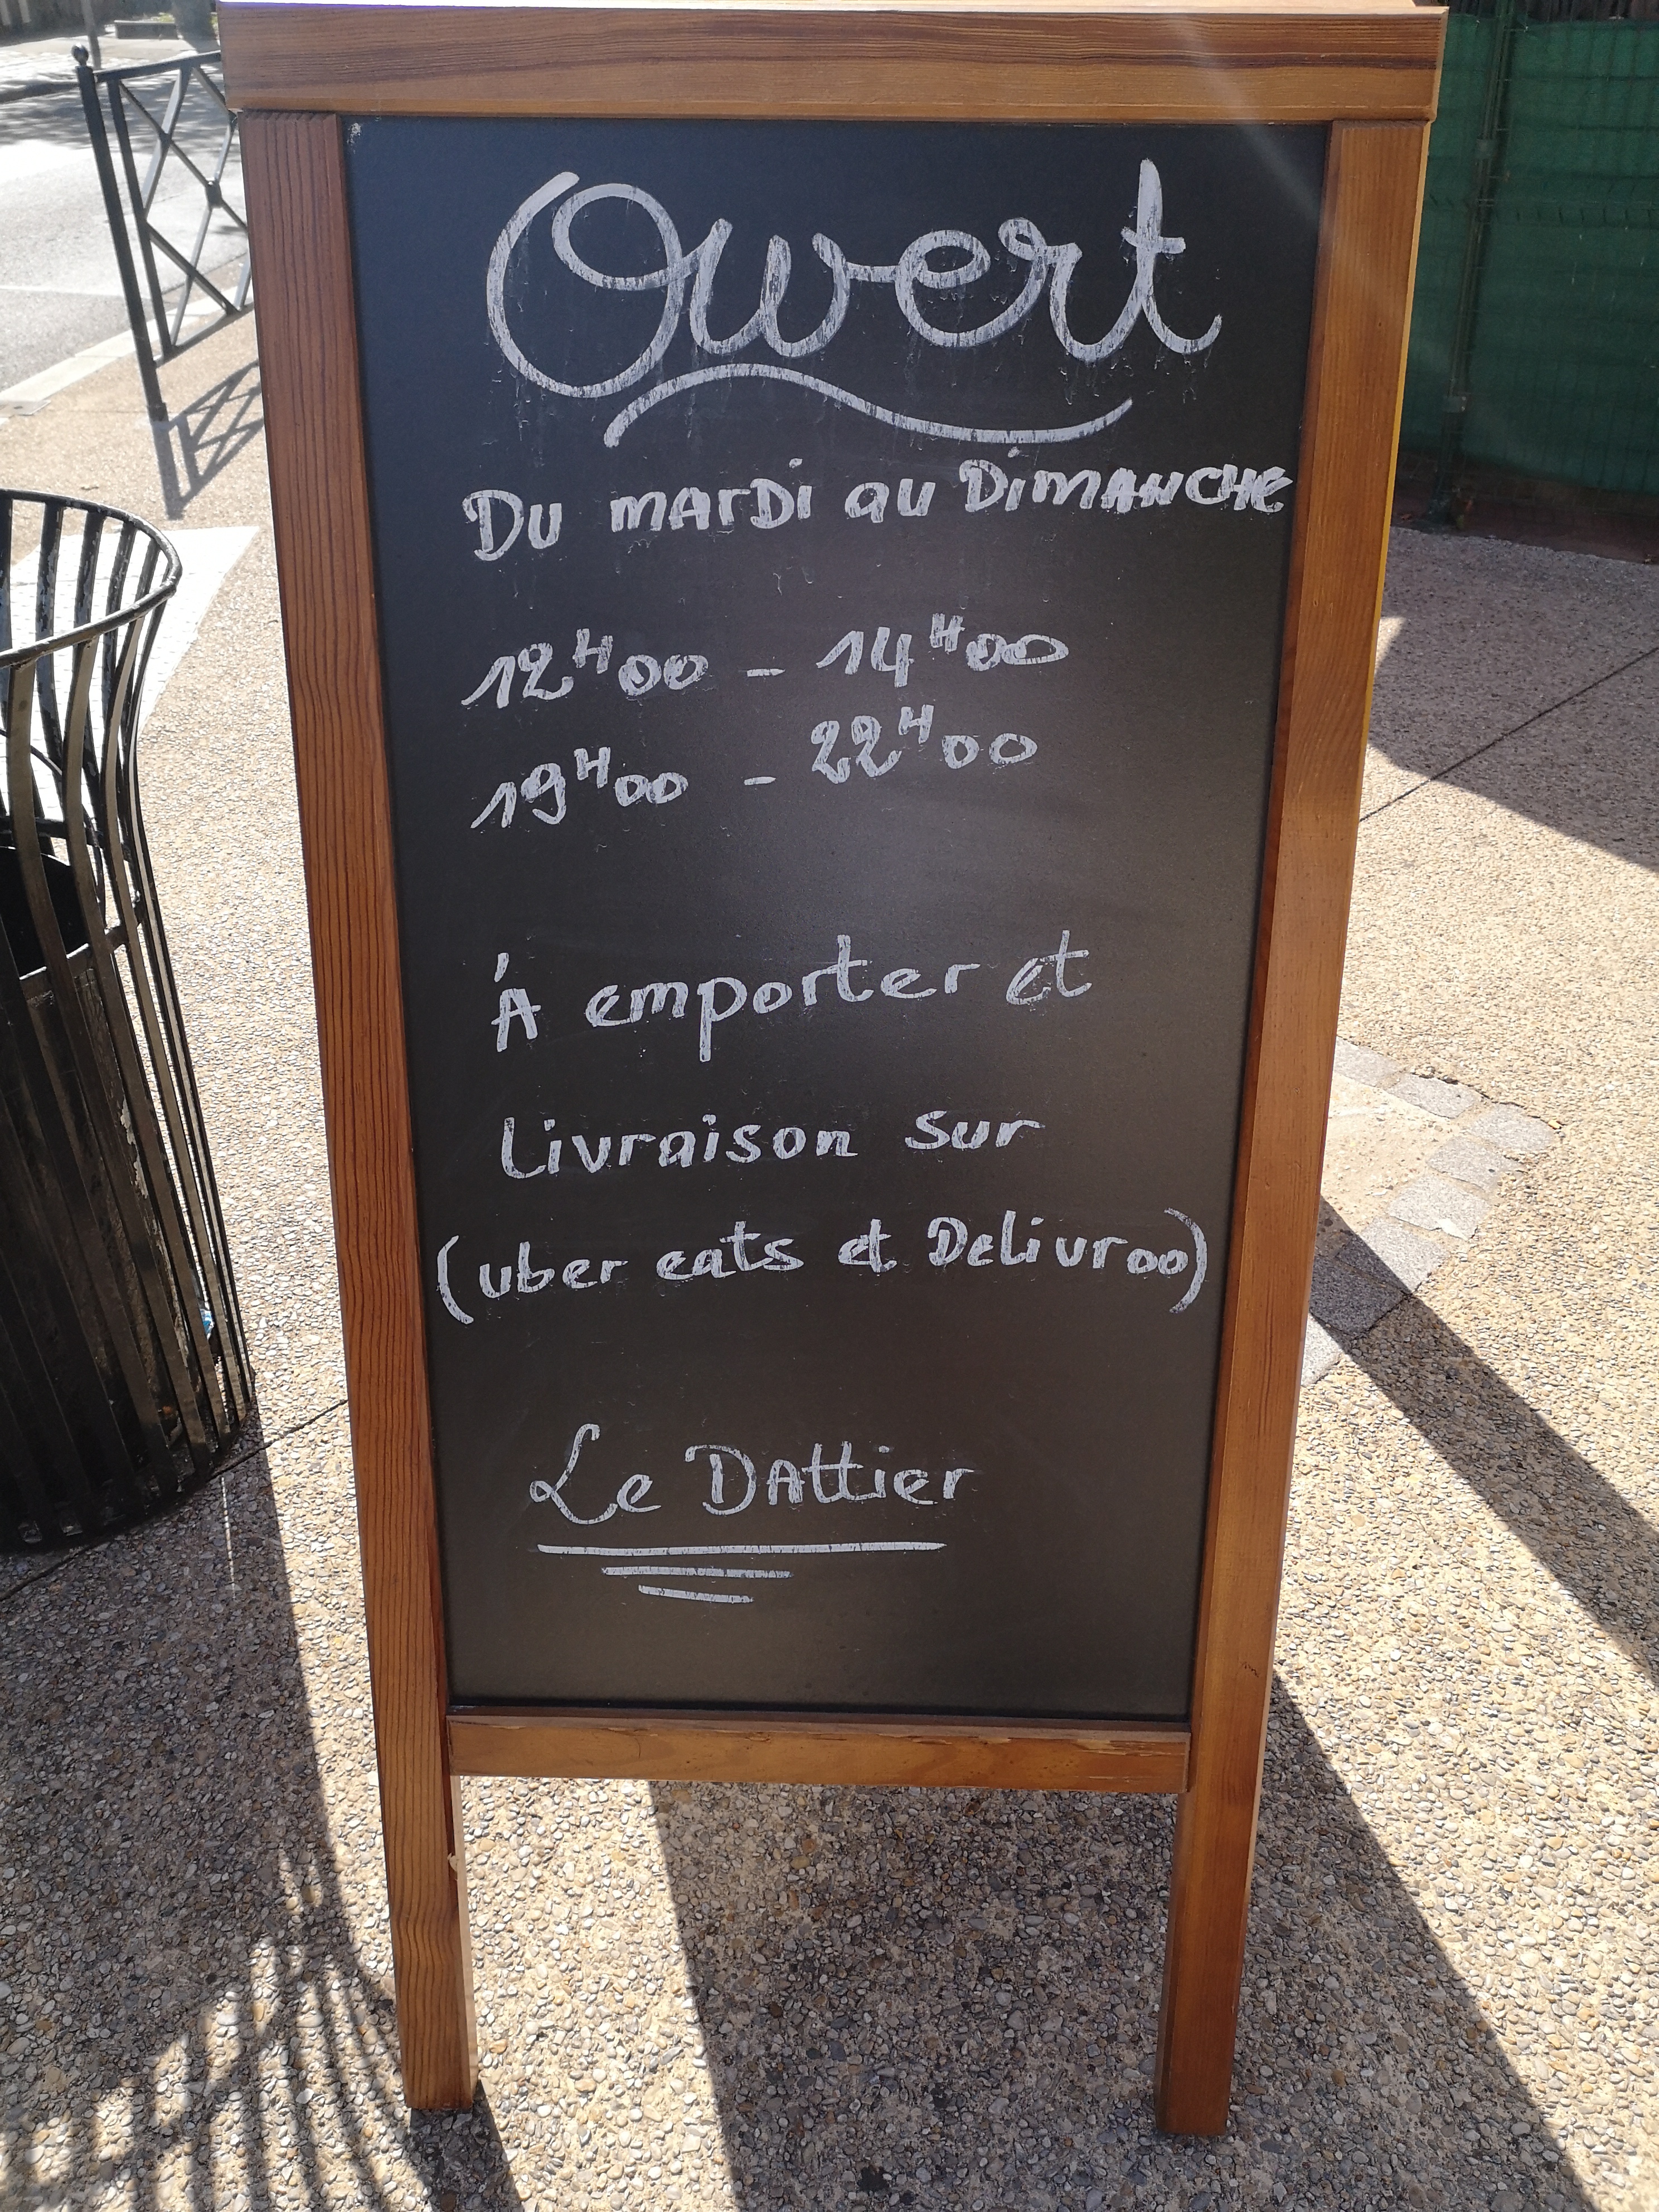 Ouvert
Du mardi au Dimanche
12H00 - 14H00
19H00 - 22H00
À emporter et
Livraison sur
(uber eats et Delivroo)
Le Dattier